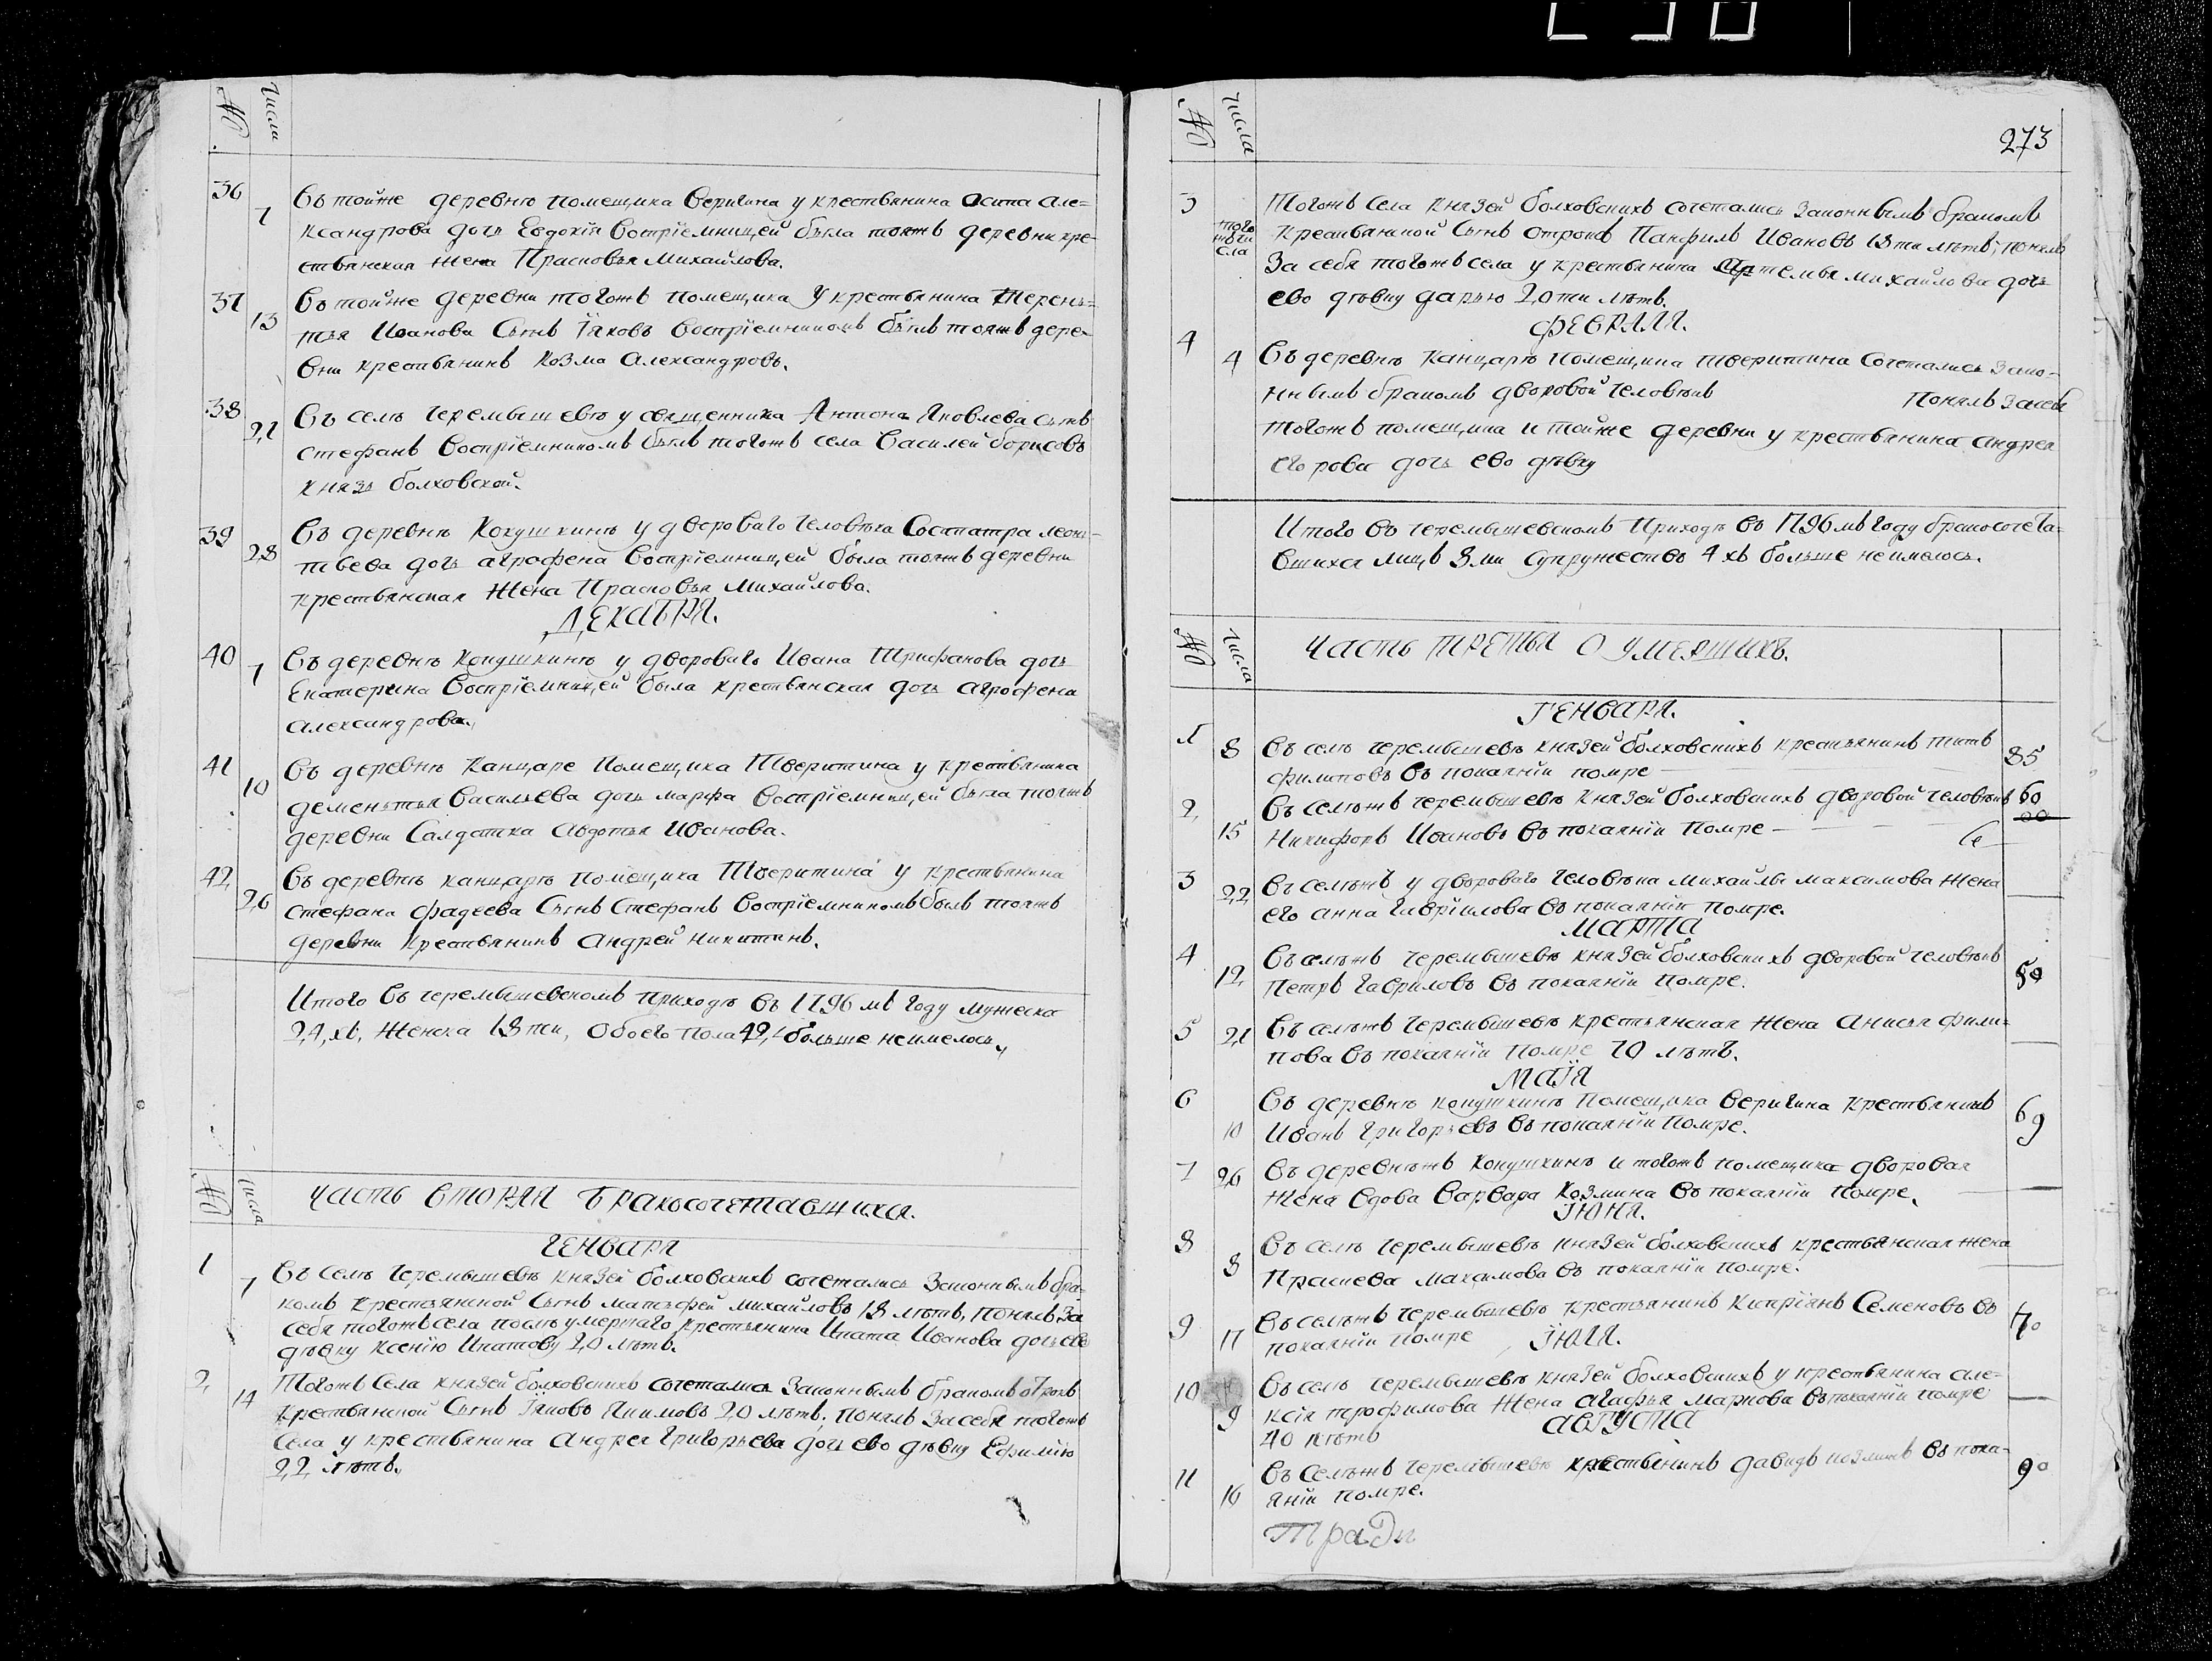 № Числа
36 7 Въ тойже деревнѣ помещика Веригина у крестьянина Осипа Але=
ксандрова дочь Евдокія Воспріемницей была тояжъ деревни кре-
стьянская жена Прасковья Михайлова.
37 13 Въ тойже деревни тогожъ помещика У крестьянина Терень=
тья Иванова Сынъ Іяковъ Воспріемникомъ былъ тояжъ дере-
вни крестьянинъ Козма Александровъ.
38 21 Въ селѣ Черемышевѣ у священника Антона Яковлева сынъ
Стефанъ Воспріемникомъ былъ тогожъ села Василей Борисовъ
Князь Болховской.
39 28 Въ деревнѣ Кокушкинѣ у двороваго человѣка Сосипатра Леонь-
тьева дочь Агрофена Воспріемницей была тояжъ деревни
крестьянская Жена Прасковья Михайлова.
ДЕКАБРЯ.
40 7 Въ деревнѣ Кокушкинѣ у двороваго Ивана Трифанова дочь
Екатерина Воспріемницей была крестьянская дочь Агрофена
Александрова.
41 10 Въ деревнѣ Канцаре Помещика Тверитина у крестьянина
Дементья Васильева дочь Марфа Воспріемницей была тояжъ
деревни Салдатка Авдотья Иванова.
42 26 Въ деревнѣ Канцарѣ помещика Тверитина у крестьянина
Стефана Фадеева Сынъ Стефанъ Воспріемникомъ былъ тояжъ
деревни Крестьянинъ Андрей Никитинъ.
Итого Въ черемышевскомъ приходѣ въ 1796 мъ году мужеска
24, хъ, Женска 18 ти, Обоего пола 42, больше неимелось,
№ Числа
ЧАСТЬ ВТОРАЯ БРАКОСОЧЕТАВШИХСЯ.
ГЕНВАРЯ
1 7 Въ селѣ Черемышевѣ Князей Болховскихъ сочетались Законнымъ бра-
комъ Крестьянской Сынъ Матьфей Михайловъ 18 лѣтъ, понялъ За
себя тогожъ села послѣ умершаго Крестьянина Ипата Иванова дочь ево
дѣвку Ксенію Ипатову 20 лѣтъ.
2 14 Тогожъ Села князей Болховскихъ сочетались Законнымъ бракомъ отрокъ
крестьянской Сынъ Іяковъ Якимовъ 20 лѣтъ, понялъ За себя тогожъ
Села у крестьянина Андрея Григорьева дочь ево дѣвку Ефимію
22 лѣтъ.
№ Числа
273
3 того тоги сла Тогожъ Села Князей Болховскихъ сочетались Законнымъ бракомъ
Крестьянской Сынъ отрокъ Панфилъ Ивановъ 18 ти лѣтъ, понялъ
За себя тогожъ села у крестьянина Артемья Михайлова дочь
ево дѣвку Дарью 20 ти лѣтъ.
ФЕВРАЛЯ.
4 4 Въ деревнѣ Канцарѣ помещика Тверитина Сочетались Зако-
ннымъ бракомъ дворовой человѣкъ Понялъ За себя
тогожъ помещика и тойже деревни у крестьянина Андрея
Егорова дочь ево дѣвку
Итого въ черемышевскомъ приходѣ въ 1796 мъ году бракосочета-
вшихся лицъ 8 ми Супружествъ 4 хъ больше неимелось.
№ Числа
ЧАСТЬ ТРЕТЬЯ О УМЕРШИХЪ.
ГЕНВАРЯ.
1 8 Въ селѣ черемышевѣ князей Болховскихъ крестьянинъ Титъ
Филиповъ въ покаяніи помре 85
2 15 Въ селѣжъ черемышевѣ князей Болховскихъ дворовой человѣкъ 60
Никифоръ Ивановъ въ покаяніи помре
3 22 Въ селѣжъ у двороваго человѣка Михайлы Максимова жена
его Анна Гавріилова въ покаяніи помре.
МАРТА
4 12 Въ селѣжъ черемышевѣ князей Болховскихъ дворовой человѣкъ
Петръ Гавриловъ въ покаяніи помре. 50
5 21 Въ селѣжъ черемышевѣ крестьянская жена Анисья Фили-
пова въ покаяніи помре 70 лѣтъ.
МАЇЯ
6 10 Въ деревнѣ Кокушкинѣ Помещика Веригина Крестьянинъ
Иванъ Григорьевъ въ покаяніи помре. 69
7 26 Въ деревнѣжъ Кокушкинѣ и тогожъ помещика дворовая
жена вдова Варвара Козмина въ покаяніи помре.
ІЮНЯ.
8 8 Въ селѣ черемышевѣ князей Болховскихъ крестьянская жена
Праскева Макимова въ покаяніи помре.
9 17 Въ селѣжъ черемышевѣ крестьянинъ Кипріянъ Семеновъ въ
покаяніи помре 70
ІЮЛЯ.
10 9 Въ селѣ черемышевѣ князей Болховскихъ у крестьянина Але-
ксія Трофимова Жена Агафья Маркова въ покаяніи помре
40 лѣтъ
АВГУСТА
11 16 Въ Селѣжъ черемышевѣ крестьянинъ Давидъ Козминъ въ пока-
яніи помре. 90